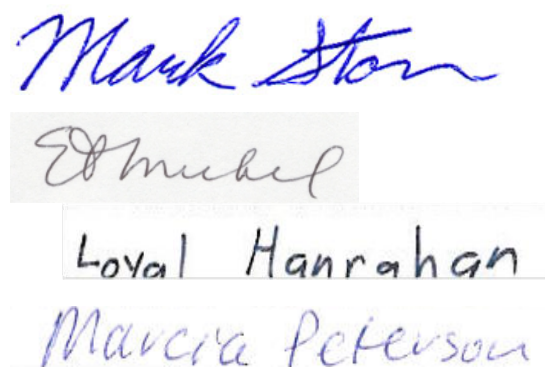 Mark Ston
Loyal Hanrahan
Marcia Peterson